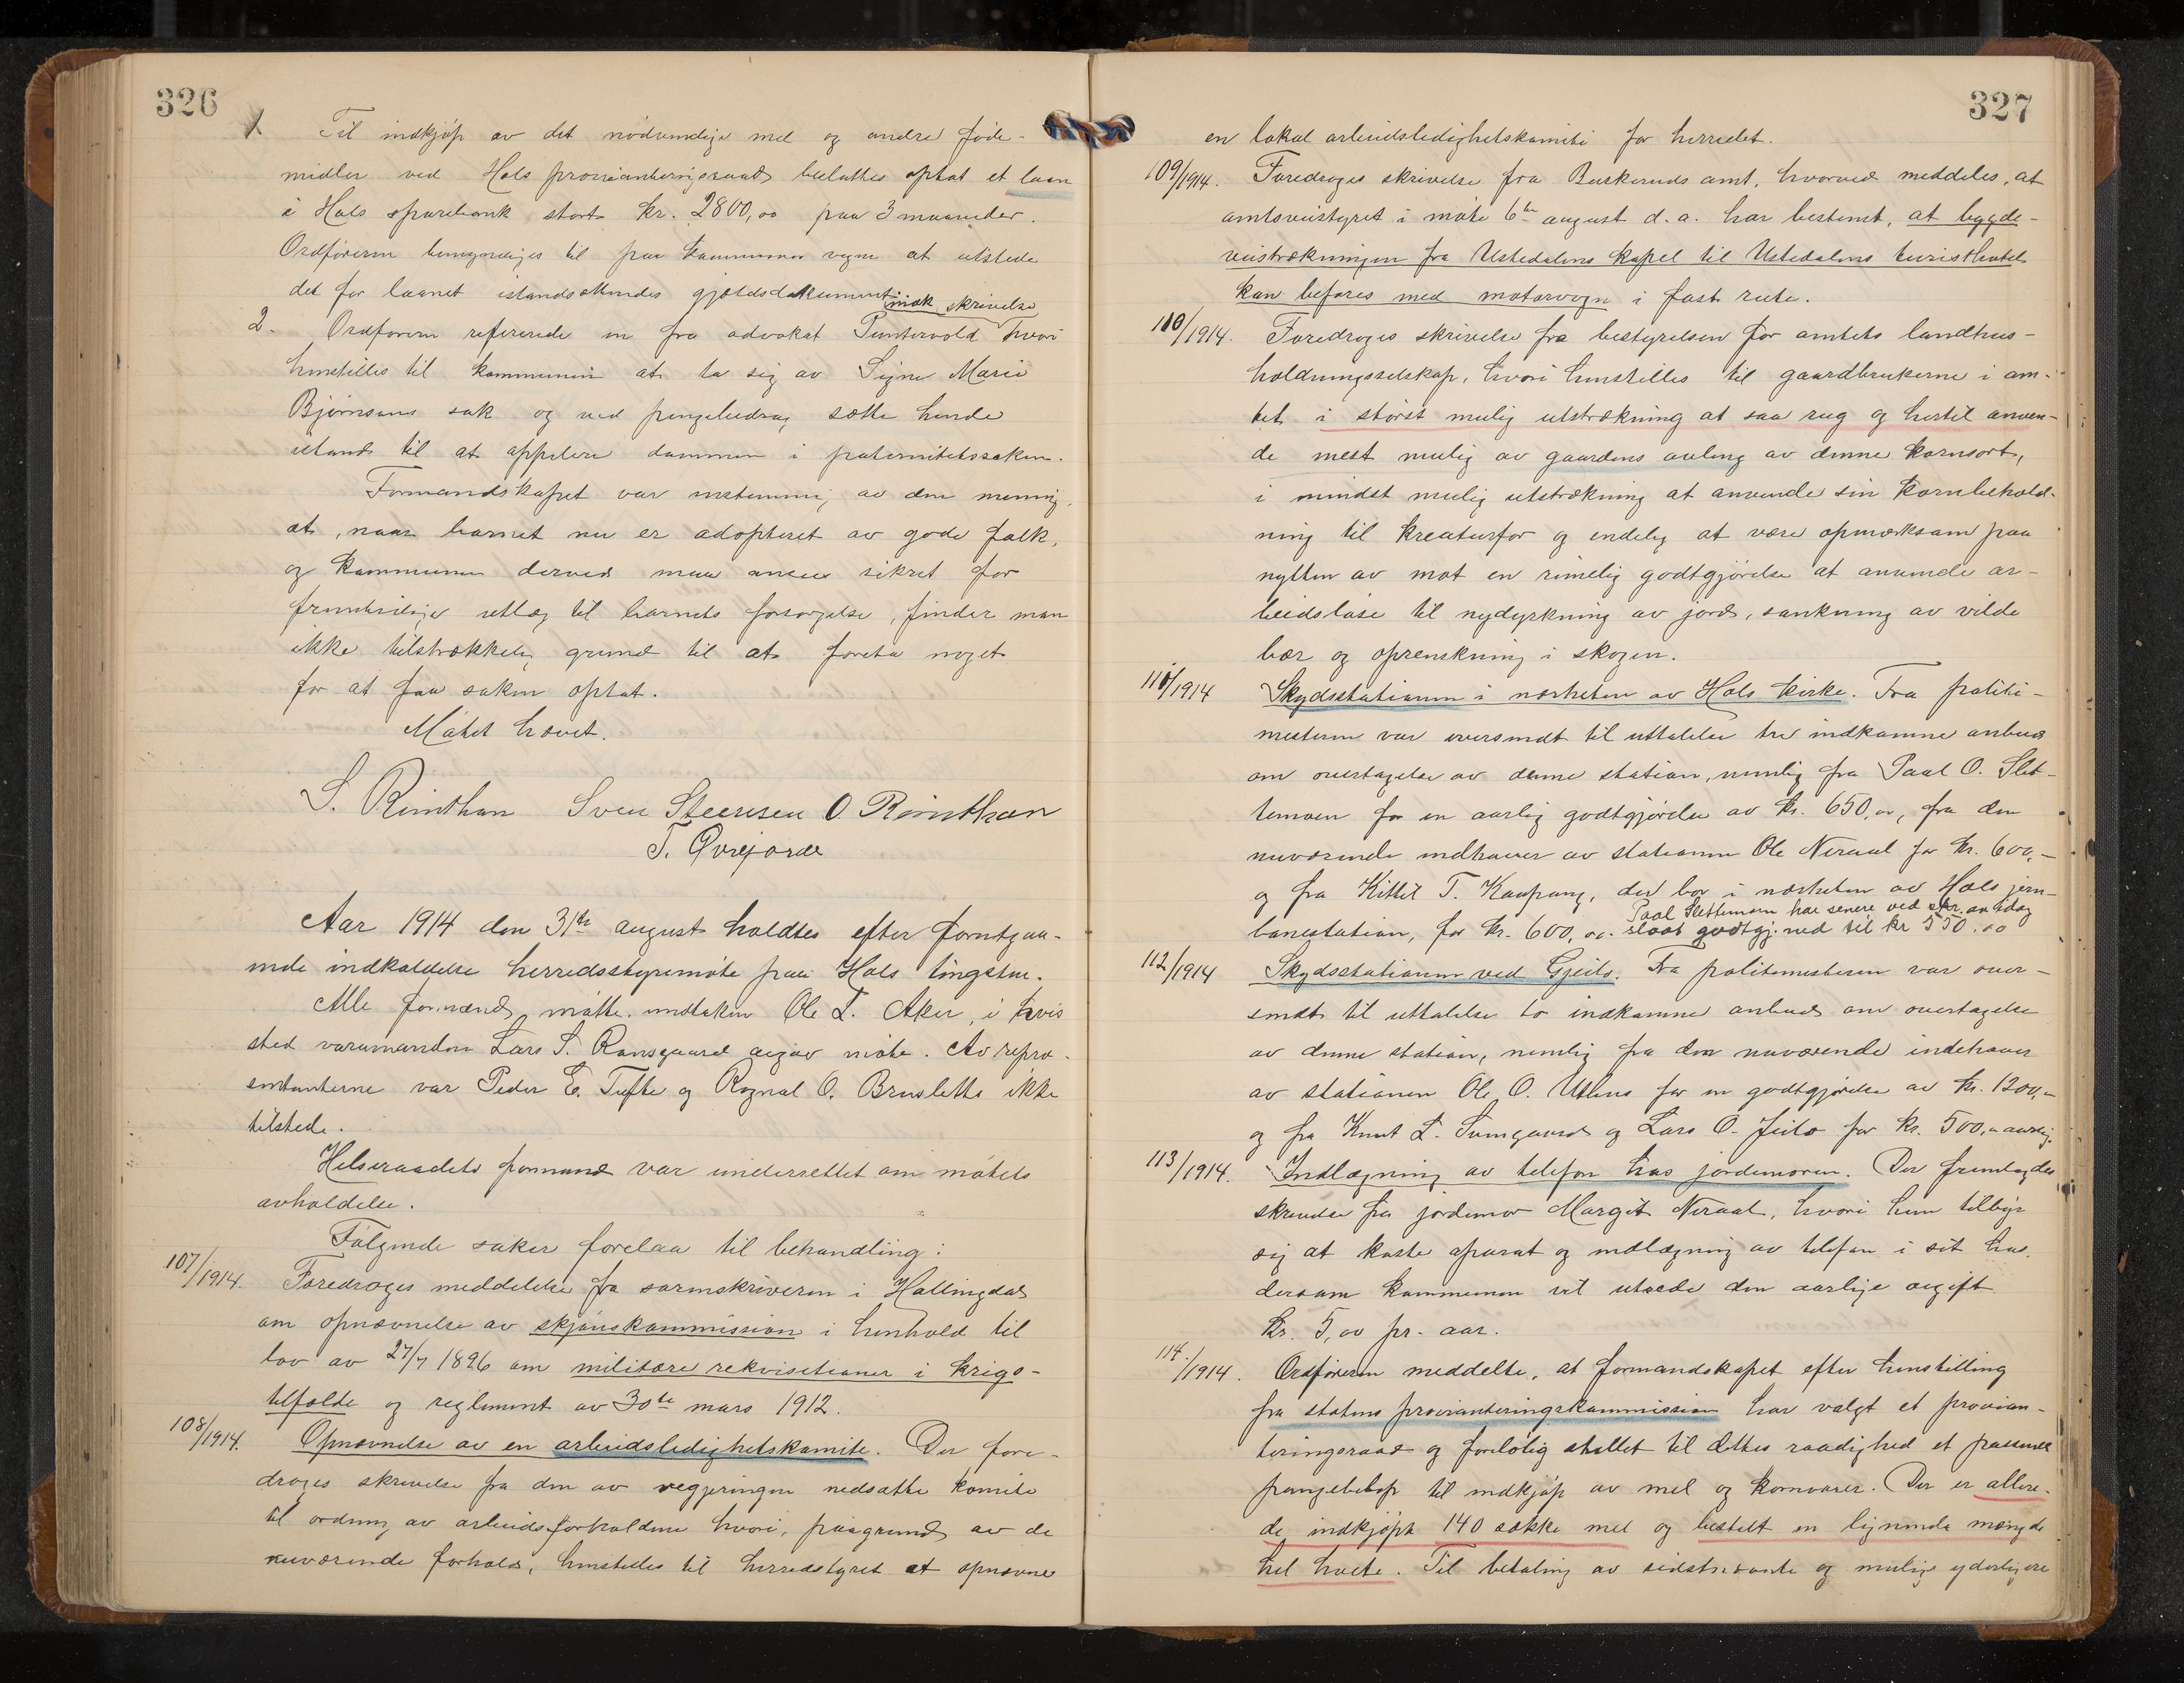 326
1. Til indkjøp av det nødvendige mel og andre føde-
midler ved Hols provianteringsraad besluttes optat et laan
i Hols sparebank stort kr. 2800,00 paa 3 maaneder.
Ordføreren bemyndiges til paa kommunens vegne at utstede
det for laanet istandsættendes gjældsdokument.
2. Ordføreren refererede en inok skrivelse fra advokat Puntervold hvori
henstilles til kommunen at ta sig av Signe Marie
Bjørnsens sak og ved pengebidrag sætte hende
istand til at appelere dommen i paternitetssaken.
Formandskapet var enstemmig av den mening,
at, naar barnet nu er adopteret av gode folk,
og kommunen derved maa ansees sikret for
fremtidige utlæg til barnets forsørgelse, finder man
ikke tilstrækkelig grund til at foreta noget
for at faa saken optat.
Møtet hævet.
S. Reinthon Sven Steensen O Reinthon
T. Øvrejorde
Aar 1914 den 31te august holdtes efter forutgaa-
ende indkaldelse herredsstyremøte paa Hols tingstue.
Alle formænd møtte undtaken Ole L. Aker, i hvis
sted varamanden Lars S. Ransgaard avgav møte. Av repræ-
sentanterne var Peder E. Tufte og Ragnal O. Brusletto ikke
tilstede.
Helseraadets formand var underrettet om møtets
avholdelse.
Følgende saker forelaa til behandling:
107/1914. Foredroges meddelelse fra sorenskriveren i Hallingdal
om opnævnelse av skjønskommission i henhold til
lov av 27/7 1896 om militære rekvisitioner i krigs-
tilfælde og reglement av 30te mars 1912.
108/1914. Opnævnelse av en arbeidsledighetskomite. Der fore-
droges skrivelse fra den av regjeringen nedsatte komite
til ordning av arbeidsforholdene hvori, paagrund av de
nuværende forhold, henstilles til herredstyret at opnævne
327
en lokal arbeidsledighetskomite for herredet.
109/1914. Foredroges skrivelse fra Buskeruds amt, hvorved meddeles, at
amtsveistyret i møte 6te august d.a. har bestemt, at bygde-
veistrækningen fra Ustedalens kapel til Ustedalens turisthotel
kan befares med motorvogn i fast rute.
110/1914. Foredroges skrivelse fra bestyrelsen for amtets landhus-
holdningsselskap, hvori henstilles til gaardbrukerne i am-
tet i størst mulig utstrækning at saa rug og hertil anven-
de mest mulig av gaardens avling av denne kornsort,
i mindst mulig utstrækning at anvende sin kornbehold-
ning til kreaturfor og endelig at være opmerksom paa
nytten av mot en rimelig godtgjørelse at anvende ar-
beidsløse til nydyrkning av jord, sankning av vilde
bær og oprenskning i skogen.
111/1914 Skydsstationen i nærheten av Hols kirke. Fra politi-
mesteren var oversendt til uttalelse tre indkomne anbud
om overtagelse av denne station, nemlig fra Paal O. Slet-
temoen for en aarlig godtgjørelse av kr. 650,00, fra den
nuværende indhaver av stationen Ole Neraal for kr. 600,-
og fra Kittil T. Kaupang, der bor i nærheten av Hols jern-
banestation, for kr. 600,00. Paal Slettemoen har senere ved skr. av idag
slaat godtgj. ned til kr 550.00
112/1914 Skydsstationen ved Gjeilo. Fra politimesteren var over-
sendt til uttalelse to indkomne anbud om overtagelse
av denne station, nemlig fra den nuværende indehaver
av stationen Ole O. Uthus for en godtgjørelse av kr. 1200,-
og fra Knut L. Sumgaard og Lars O. Jeilo for kr. 500,- aarlig.
113/1914. Indlægning av telefon hos jordemoren. Der fremlagdes
skrivelse fra jordemor Margit Neraal, hvori hun tilbyr
sig at koste aparat og indlægning av telefon i sit hus,
dersom kommunen vil utrede den aarlige avgift
kr. 5,00 pr. aar.
114./1914. Ordføreren meddelte, at formandskapet efter henstilling
fra statens provianteringskommission har valgt et provian-
teringsraad og foreløbig stillet til dettes raadighed et passende
pengebeløp til indkjøp av mel og kornvarer. Der er allere-
de indkjøpt 140 sække mel og bestelt en lignende mængde
hel hvete. Til betaling av sidstnævnte og mulige yderligere